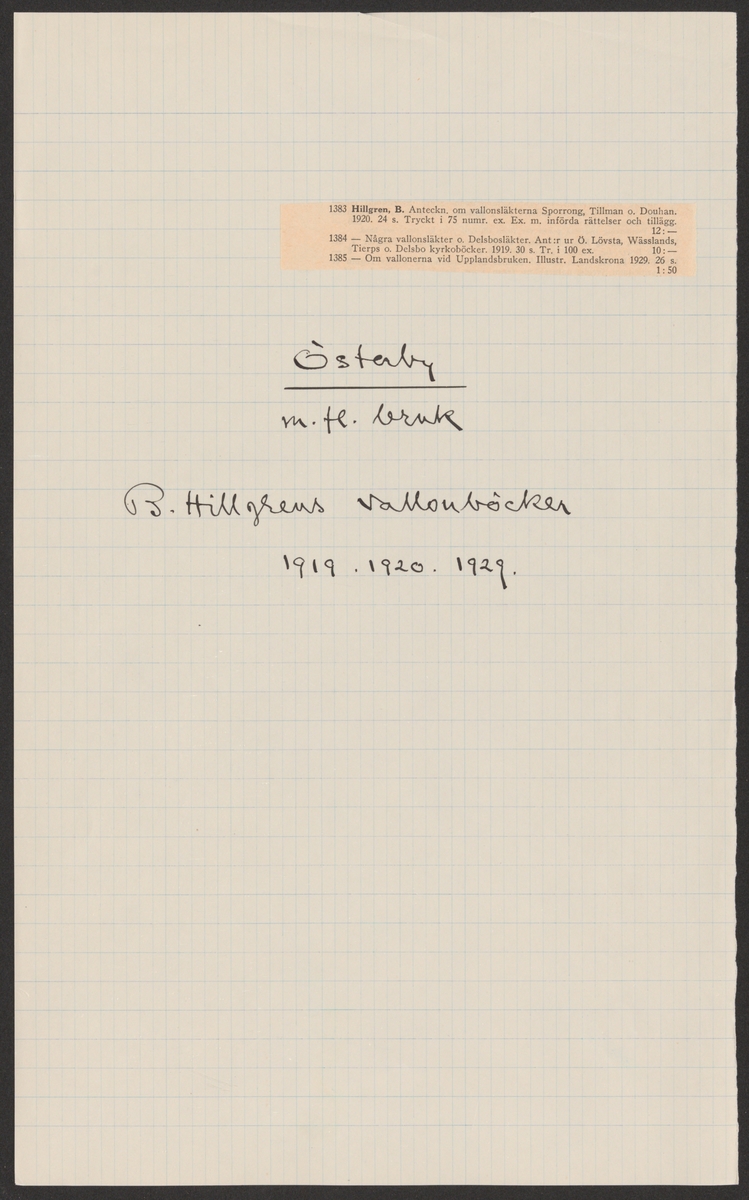 1383 Hillgren, B. Anteckn. om vallonsläkterna Sporrong, Tillman o. Douhan.
1920. 24 s. Tryckt i 75 numr. ex. Ex. m. införda rättelser och tillägg.
12:—
1384 — Några vallonsläkter o. Delsbosläkter. Ant:r ur Ö. Lövsta, Wässlands,
Tierps o. Delsbo kyrkoböcker. 1919. 30 s. Tr. i 100 ex. 10:—
1385 — Om vallonerna vid Upplandsbruken. Illustr. Landskrona 1929. 26 s.
1:50
Österby
m. fl. bruk
B. Hillgrens vallonböcker
1919. 1920. 1929.